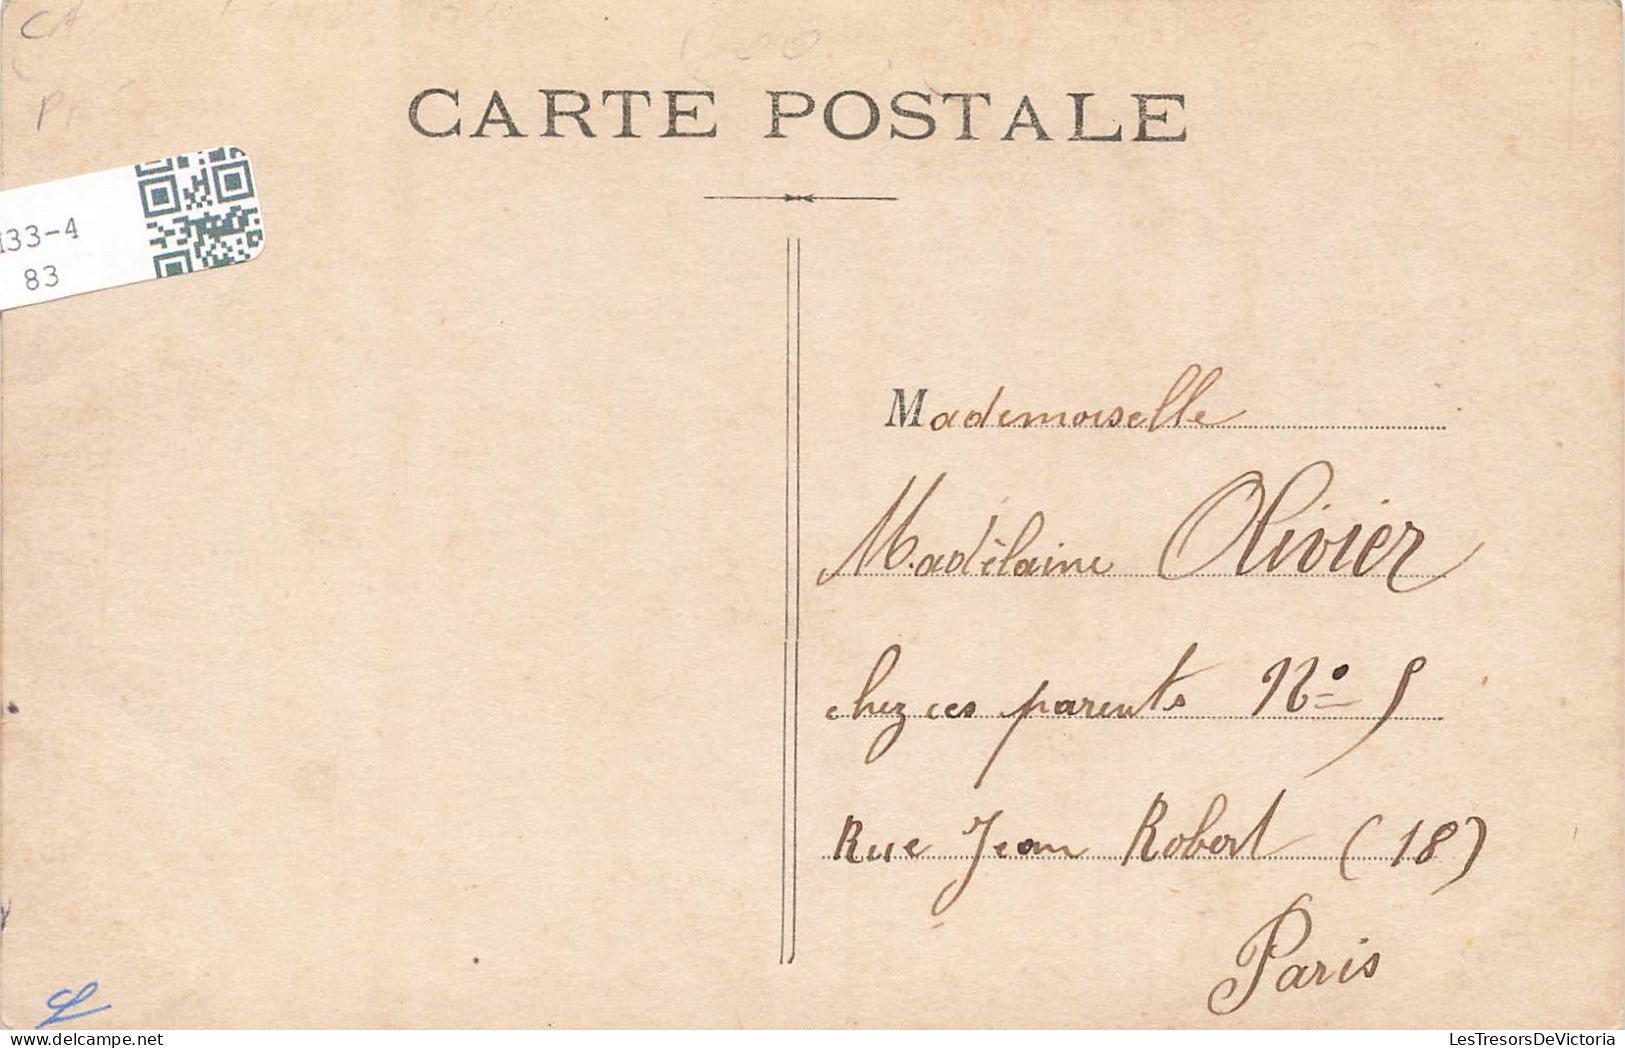 CARTE POSTALE
33-4
83
Mademoiselle
Madélaine Olivier
chez ces parents No 5
Rue Jean Robert (18)
Paris
LesTresorsDeVictoria